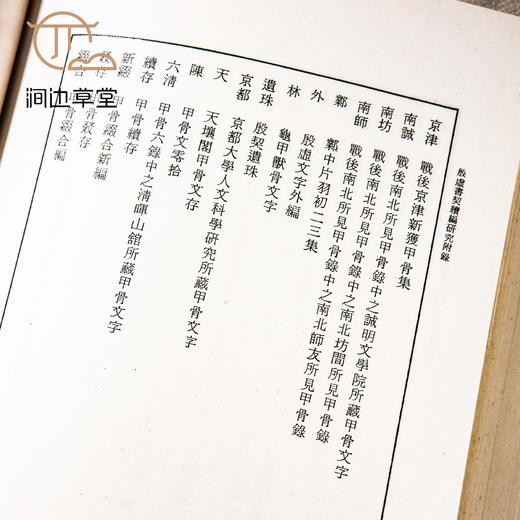 殷虛書契續編研究附錄
京津 戰後京津新獲甲骨集
南誠 戰後南北所見甲骨錄中之誠明文學院所藏甲骨文字
南坊 戰後南北所見甲骨錄中之南北坊間所見甲骨錄
南師 戰後南北所見甲骨錄中之南北師友所見甲骨錄
鄴 鄴中片羽初二三集
外 殷虛文字外編
林 龜甲獸骨文字
遺珠 殷契遺珠
京都 京都大學人文科學研究所藏甲骨文字
天 天壤閣甲骨文存
陳 甲骨文零拾
六清 甲骨六錄中之清暉山館所藏甲骨文字
續存 甲骨續存
新綴 甲骨綴合新編
存 甲骨叕存
綴合 甲骨綴合編
涧边草堂